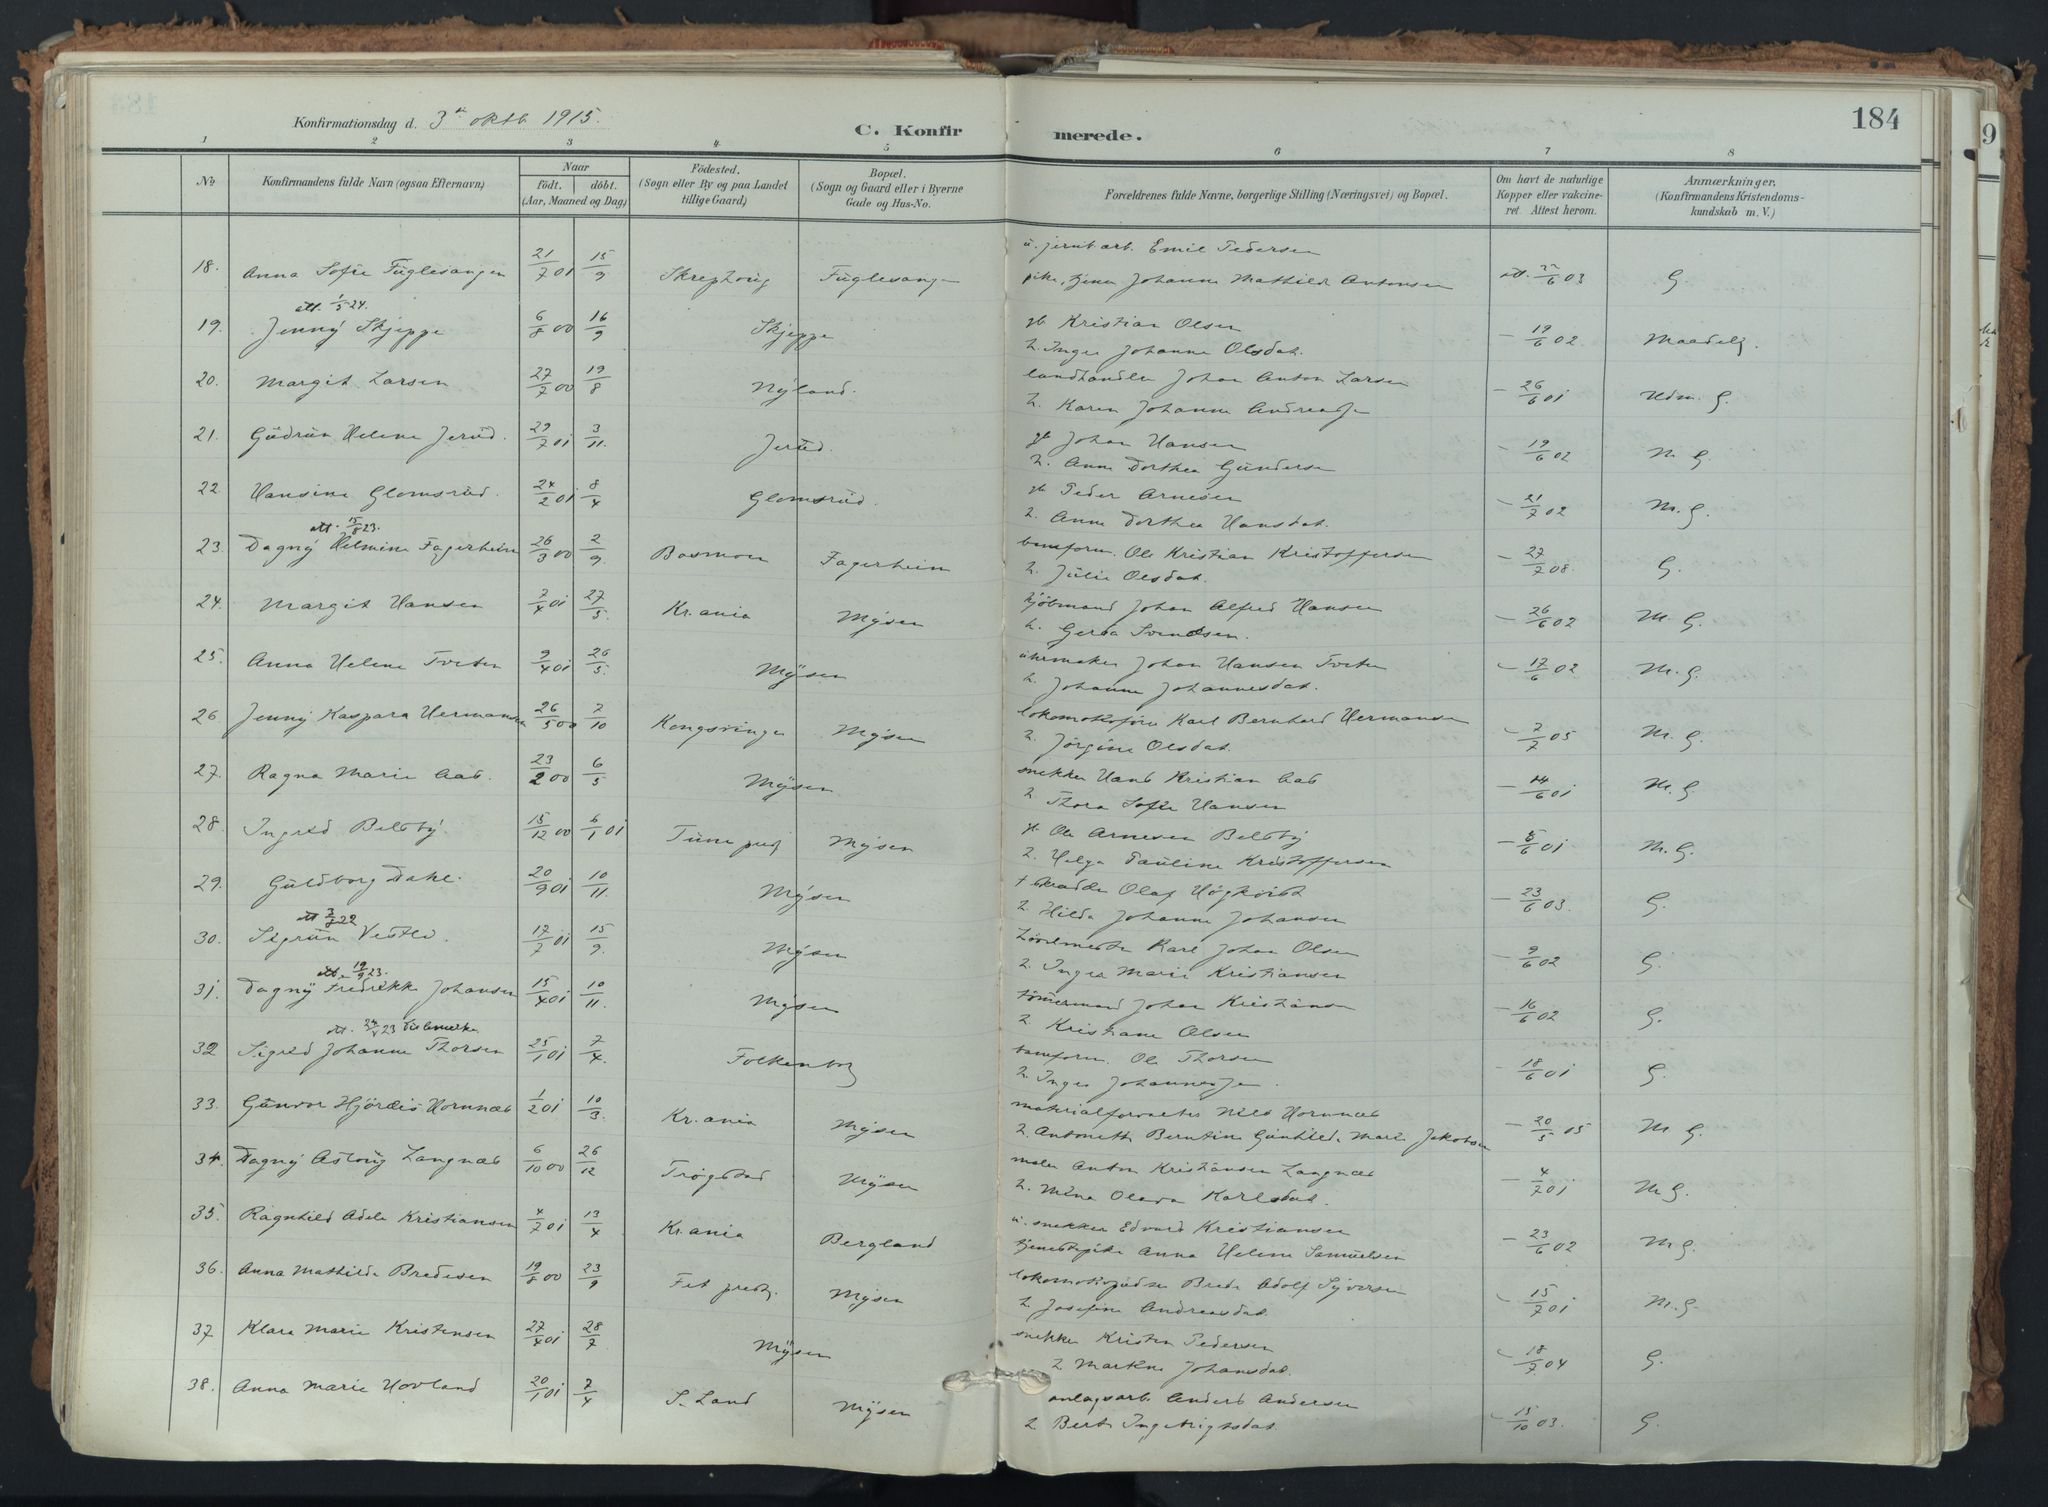 184
Konfirmationsdag d. 3die oktb. 1915.
C. Konfirmerede.
1 2 3 4 5 6 7 8
No. Konfirmandens fulde Navn (ogsaa Efternavn) Naar födt. döbt. (Aar, Maaned og Dag) Födested. (Sogn eller By og paa Landet tillige Gaard) Bopæl. (Sogn og Gaard eller i Byerne Gade og Hus-No. Forældrenes fulde Navne, borgerlige Stilling (Næringsvei) og Bopæl. Om havt de naturlige Kopper eller vakcineret. Attest herom. Anmærkninger. (Konfirmandens Kristendomskundskab m. V.)
u. jernb.arb. Emil Pedersen
18. Anna Sofie Fuglesangen 21/7 01 15/9 Fuglesang pike, Johanne Mathilde Antonsen att. 22/6 03 G.
att. 1/5 24.
19. Jenny Skjeppe 6/8 00 16/9 Skjeppe gb Kristian Olsen - 19/6 02 Maadelg.
h. Inger Johanne Olsdat.
20. Margit Larsen 27/7 00 19/8 Nyland. landhandler Johan Anton Larsen - 26/6 01 Udm. G.
h. Karen Johanne
21. Gudrun Helene Jerud. 29/7 01 3/11. Jerud. gb Johan Hansen - 19/6 02 M G.
h. Anne Dorthea Gundersen
22. Hansine Glomsrud. 24/2 01 8/4 Glomsrud. gb Peder Arnesen - 21/7 02 M. G.
h. Anne Dorthea Hansdat.
att. 15/8 23.
23. Dagny Helmine Fagerheim 26/3 00 2/9. Basmoen Fagerheim banform. Ole Kristian Kristoffersen - 27/7 08. G.
h. Julie Olsdat.
24. Margit Hansen 7/4 01 27/5. Kr.ania Mysen kjöbmand Johan Alfred Hansen - 26/6 02 M. G.
h. Gerda Svendsen.
25. Anna Helene Tveten 9/4 01 26/5. Mysen uhrmaker Johan Hansen Tveten - 17/6 02 M. G.
h. Johanne Johannesdat.
26. Jenny Kaspara Hermansen 26/5 00 7/10 Kongsvinger Mysen lokomotivförer Karl Bernhard Hermansen - 7/7 05 M. G.
h. Jörgine Olsdat.
27. Ragna Marie Aas. 23/2 00 6/5 Mysen snekker Hans Kristian Aas - 14/6 01 M. G.
h. Thora Sofie Hansen
28. Ingrid Belsby. 15/12 00 6/1 01 Tune prest. Mysen gb Ole Arnesen Belsby - 5/6 01 M. G.
h. Helga Pauline Kristoffersen
29. Guldborg Dahl. 20/9 01 10/11. Mysen † skrædder Olaf Högkvist - 23/6 03. G.
h. Hilda Johanne Johansen
att 3/8 22
30. Sigrun Vestli. 17/7 01 15/9. Mysen Karl Johan Olsen - 9/6 02 G.
h. Inger Marie Kristiansen
att. 19/9 23.
31. Dagny Fredrikke Johansen 15/4 01 10/11. Mysen tömmermand Johan Kristiansen - 16/6 02 G.
h. Kristiane Olsen
32 Sigrid Johanne Thorsen 25/1 01 7/4. Folkenborg banform. Ole Thorsen - 18/6 01 G.
h. Inger
33. Gunvor Hjördis Hornnæs 1/2 01 10/3. Kr.ania Mysen materialforvalter Nils Hornnæs - 20/5 15 M G.
h. Antonette Berntine Gunhilde Marie Jakobsen
34. Dagny Astrig Langnæs 6/10 00 26/12 Trögstad Mysen maler Anton Kristiansen Langnæs - 4/7 01 M G.
h. Mina Olava Karlsdat.
35. Ragnhild Adele Kristiansen 4/7 01 13/4 Kr.ania Bergland u. snekker Edvard Kristiansen - 23/6 02 M G.
tjenestepike Anna Helene Samuelsen
36. Anna Mathilde Bredesen 19/8 00 23/9 Fet prest. Mysen lokomotivpudser Brede Adolf Syversen - 15/7 01 M. G.
h. Josefine Andreasdat.
37 Klara Marie Kristensen 27/4 01 28/7 Mysen snekker Kristen Pedersen - 18/7 04 G.
h. Johansdat.
38. Anna Marie Hovland 20/1 01 7/4 S. Land Mysen anlægsarb. Anders Andersen - 15/10 03. G.
h. Berte Ingebrigtsdat.